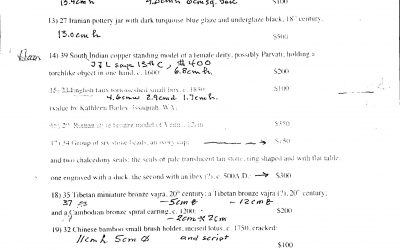 13.4cm h 4.6cm b 6cm sq. base $100
13) 27 Iranian pottery jar with dark turquoise blue glaze and underglaze black, 18th century,
13.0cm h $500
14) 39 South Indian copper standing model of a female deity, possibly Parvati, holding a
JJL says 13th C, $400
torchlike object in one hand, c. 1600 6.8cm h. $200
15) 23 English faux tortoiseshell small box, c. 1830 $100
4.6cm w 2.9cm d 1.7cm h.
(value by Kathleen Bailey, Issaquah, WA)
$150
17) 34 Group of six stone beads, an ivory cap; → $150
and two chalcedony seals: the seals of pale translucent tan stone, ring shaped and with flat table
one engraved with a duck, the second with an ibex (?), c. 500A.D.; → $300
18) 35 Tibetan miniature bronze vajra, 20th century; a Tibetan bronze vajra (?), 20th century;
37 —5cm —12cm
and a Cambodian bronze spiral earring, c. 1200 $200
—2cm x 2cm
19) 32 Chinese bamboo small brush holder, incised lotus, c. 1750, cracked;
11cm h 5cm Ø and script
$100